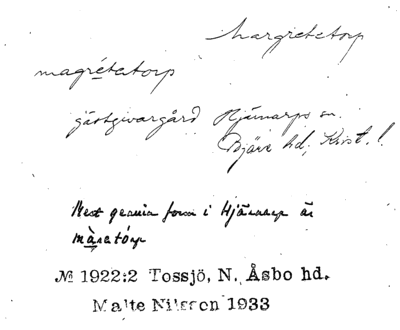 Margretetorp
magrétatorp
gästgivargård Hjärnarps sn.
Bjäre hd, Krist. l.
Mest genuin form i Hjärnarp är
màratórp
№ 1922:2 Tossjö, N. Åsbo hd.
Malte Nilsson 1933